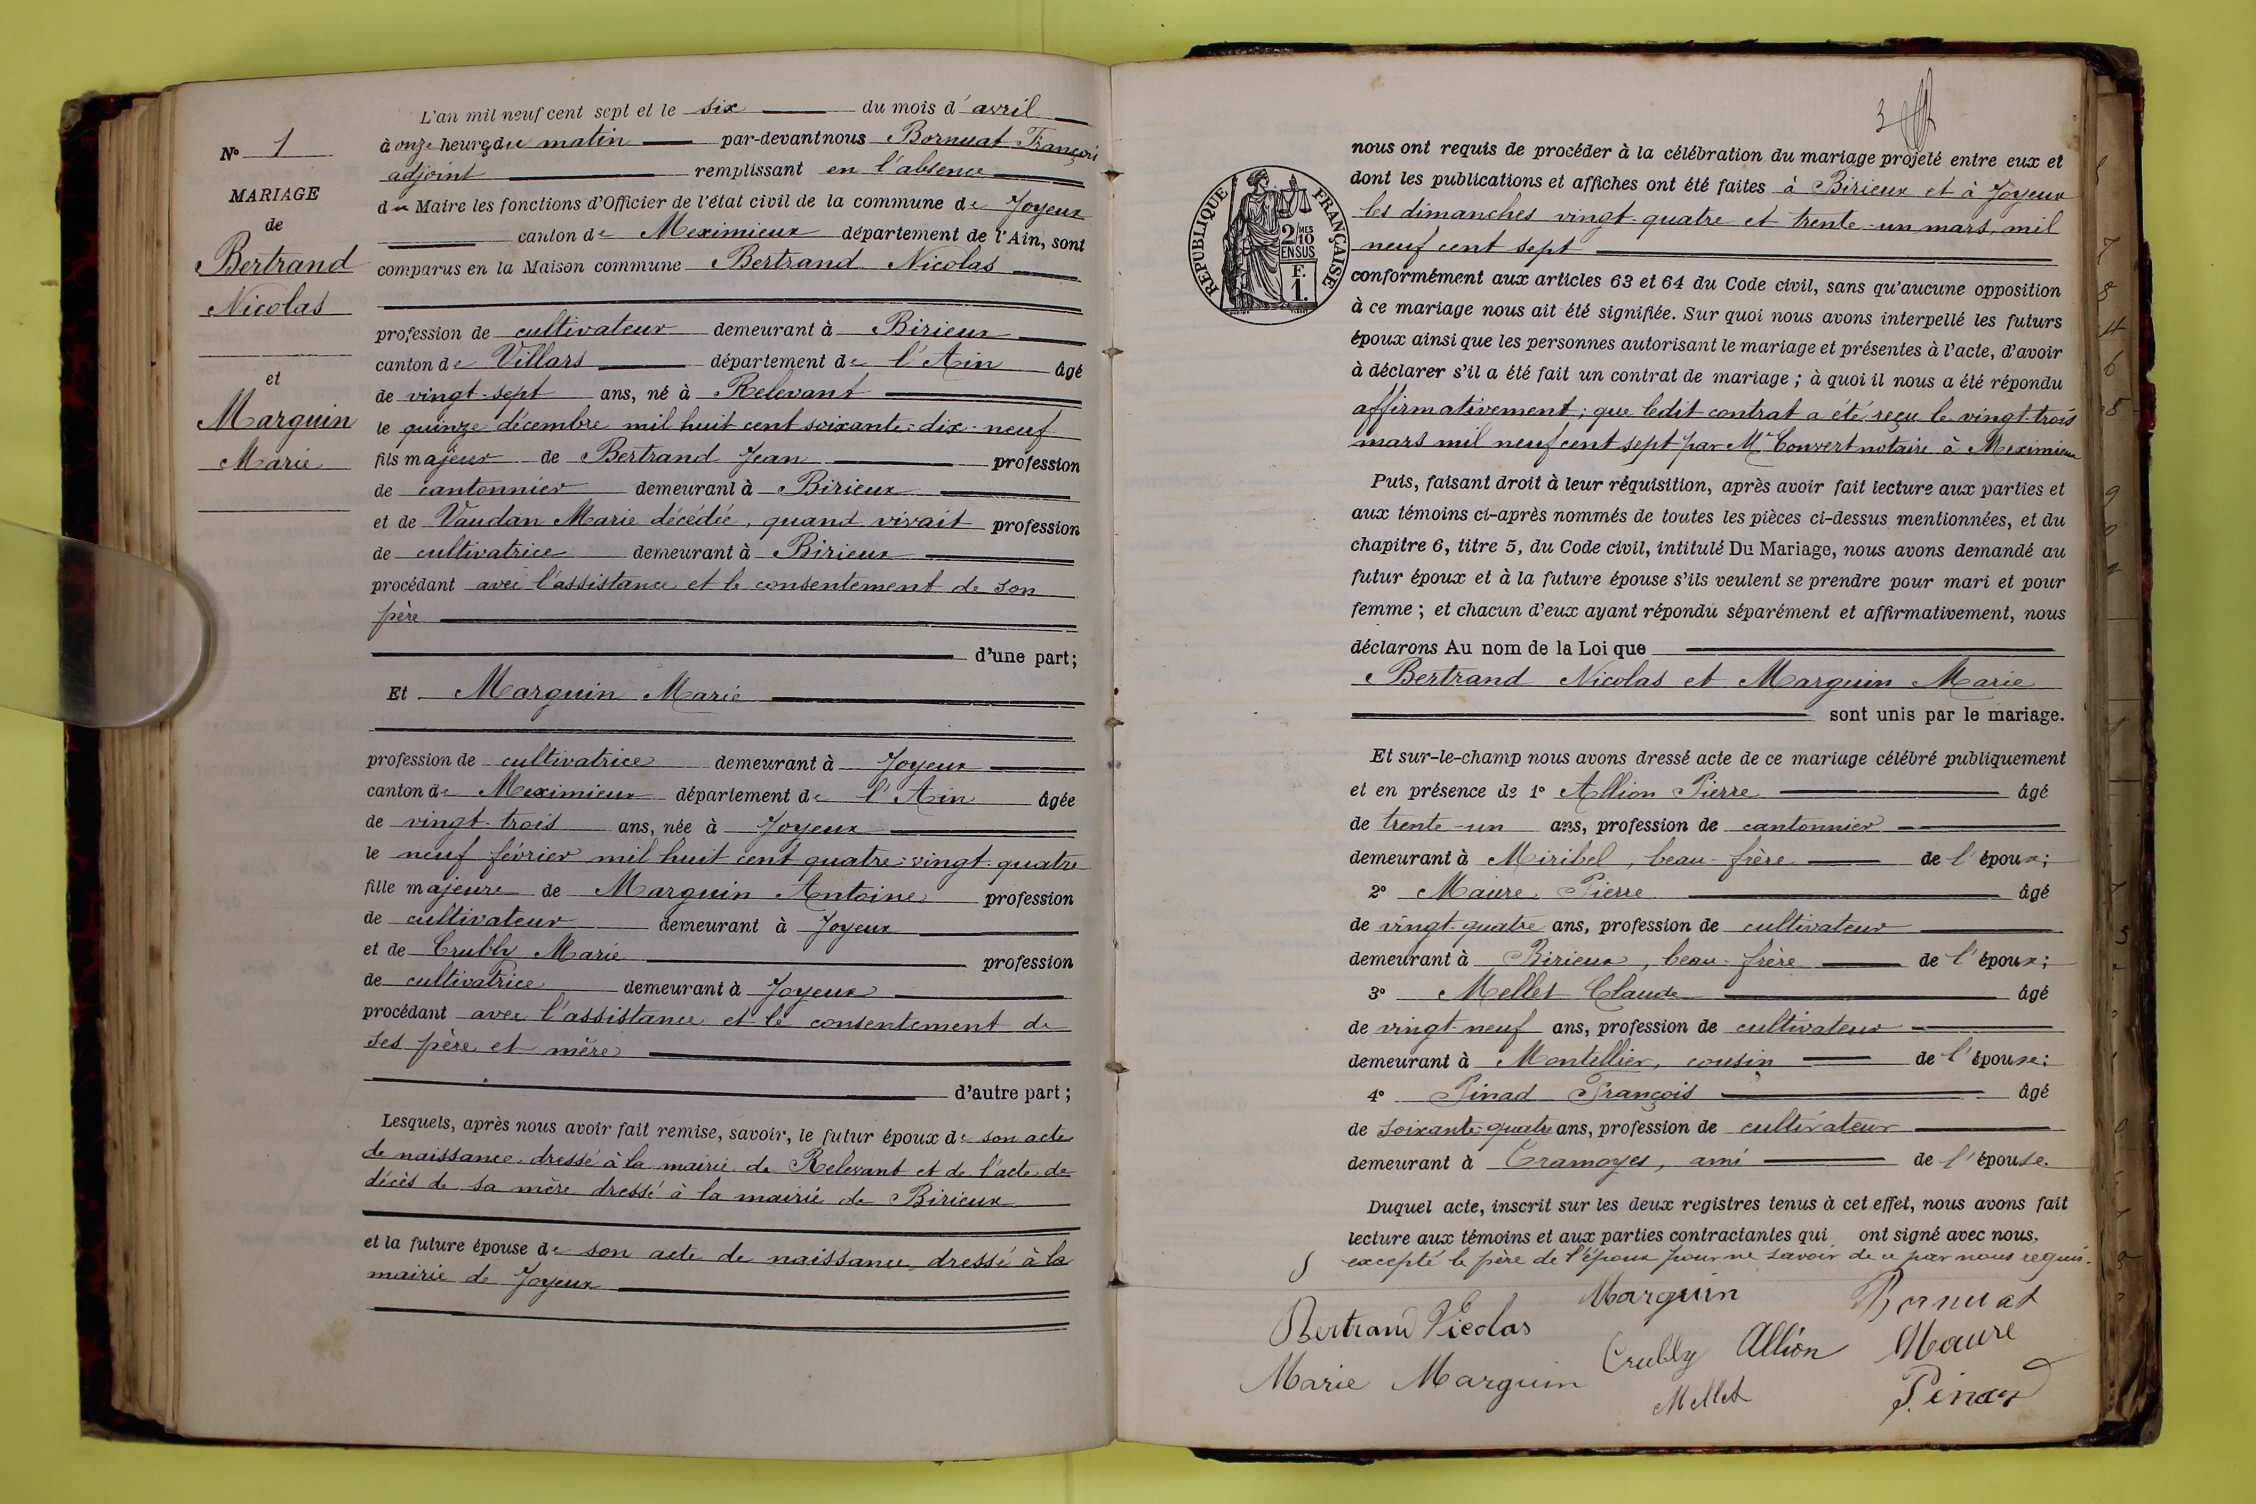 N° 1
MARIAGE
de
Bertrand
Nicolas
et
Marguin
Marie
L'an mil neuf cent sept et le six du mois d'avril
à onze heures du matin par-devant nous Bornuat François
adjoint remplissant en l'absence
du Maire les fonctions d'Officier de l'état civil de la commune de Joyeux
canton de Meximieux département de l'Ain, sont
comparus en la Maison commune Bertrand Nicolas
profession de cultivateur demeurant à Birieux
canton de Villars département de l'Ain âgé
de vingt-sept ans, né à Relevant
le quinze décembre mil huit cent soixante-dix-neuf
fils majeur de Bertrand Jean profession
de cantonnier demeurant à Birieux
et de Vaudan Marie décédée, quand vivait profession
de cultivatrice demeurant à Birieux
procédant avec l'assistance et le consentement de son
père
d'une part;
Et Marguin Marie
profession de cultivatrice demeurant à Joyeux
canton de Meximieux département de l'Ain âgée
de vingt-trois ans, née à Joyeux
le neuf février mil huit cent quatre-vingt-quatre
fille majeure de Marguin Antoine profession
de cultivateur demeurant à Joyeux
et de Crubly Marie profession
de cultivatrice demeurant à Joyeux
procédant avec l'assistance et le consentement de
ses père et mère
d'autre part;
Lesquels, après nous avoir fait remise, savoir, le futur époux de son acte
de naissance dressé à la mairie de Relevant et de l'acte de
décès de sa mère dressé à la mairie de Birieux
et la future épouse de son acte de naissance, dressé à la
mairie de Joyeux
3
RÉPUBLIQUE FRANÇAISE
2/10 MES
EN SUS
F.
1.
nous ont requis de procéder à la célébration du mariage projeté entre eux et
dont les publications et affiches ont été faites à Birieux et à Joyeux
les dimanches vingt-quatre et trente-un mars, mil
neuf cent sept
conformément aux articles 63 et 64 du Code civil, sans qu'aucune opposition
à ce mariage nous ait été signifiée. Sur quoi nous avons interpellé les futurs
époux ainsi que les personnes autorisant le mariage et présentes à l'acte, d'avoir
à déclarer s'il a été fait un contrat de mariage; à quoi il nous a été répondu
affirmativement; que ledit contrat a été reçu le vingt-trois
mars mil neuf cent sept par Me Convert notaire à Meximieux
Puis, faisant droit à leur réquisition, après avoir fait lecture aux parties et
aux témoins ci-après nommés de toutes les pièces ci-dessus mentionnées, et du
chapitre 6, titre 5, du Code civil, intitulé Du Mariage, nous avons demandé au
futur époux et à la future épouse s'ils veulent se prendre pour mari et pour
femme; et chacun d'eux ayant répondu séparément et affirmativement, nous
déclarons Au nom de la Loi que
Bertrand Nicolas et Marguin Marie
sont unis par le mariage.
Et sur-le-champ nous avons dressé acte de ce mariage célébré publiquement
et en présence de 1° Allion Pierre âgé
de trente-un ans, profession de cantonnier
demeurant à Miribel, beau-frère de l'époux;
2° Maure Pierre âgé
de vingt-quatre ans, profession de cultivateur
demeurant à Birieux, beau-frère de l'époux;
3° Mellet Claude âgé
de vingt-neuf ans, profession de cultivateur
demeurant à Montellier, cousin de l'épouse;
4° Pinad François âgé
de soixante-quatre ans, profession de cultivateur
demeurant à Tramoyes, ami de l'épouse.
Duquel acte, inscrit sur les deux registres tenus à cet effet, nous avons fait
lecture aux témoins et aux parties contractantes qui ont signé avec nous,
excepté le père de l'époux pour ne savoir de ce par nous requis.
Marguin Bornuat
Bertrand Nicolas
Crubly Allion Maure
Marie Marguin
Mellet